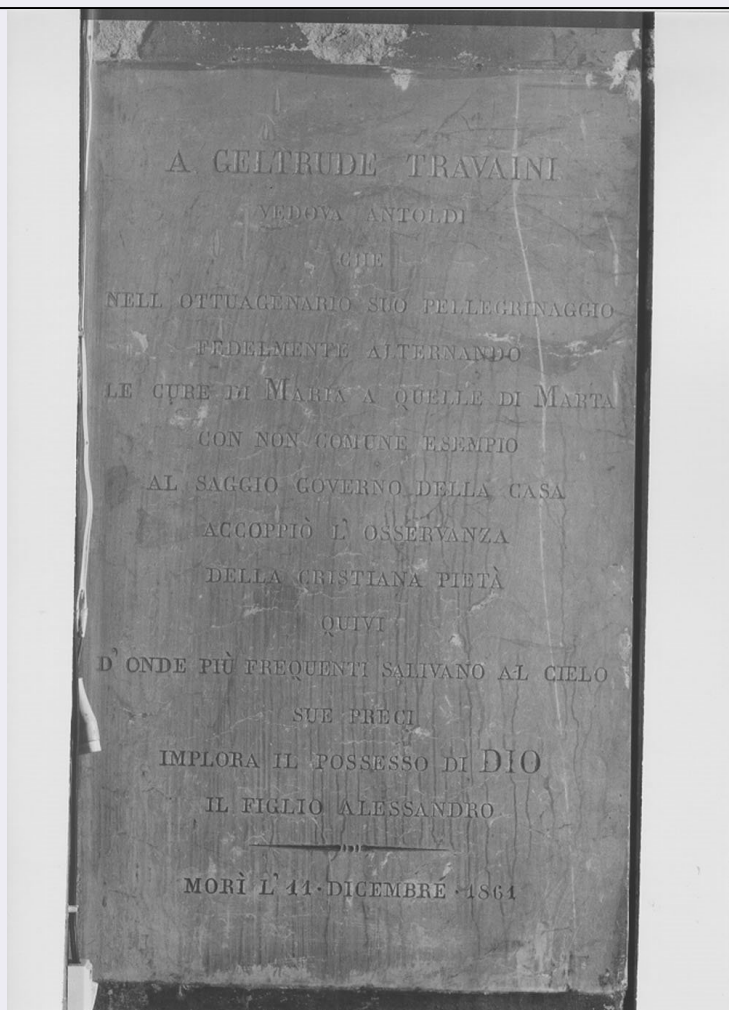 A GELTRUDE TRAVAINI
VEDOVA ANTOLDI
CHE
NELL OTTUAGENARIO SUO PELLEGRINAGGIO
FEDELMENTE ALTERNANDO
LE CURE DI MARIA A QUELLE DI MARTA
CON NON COMUNE ESEMPIO
AL SAGGIO GOVERNO DELLA CASA
ACCOPPIÒ L' OSSERVANZA
DELLA CRISTIANA PIETÀ
QUIVI
D' ONDE PIÙ FREQUENTI SALIVANO AL CIELO
SUE PRECI
IMPLORA IL POSSESSO DI DIO
IL FIGLIO ALESSANDRO
MORÌ L' 11 · DICEMBRE · 1861